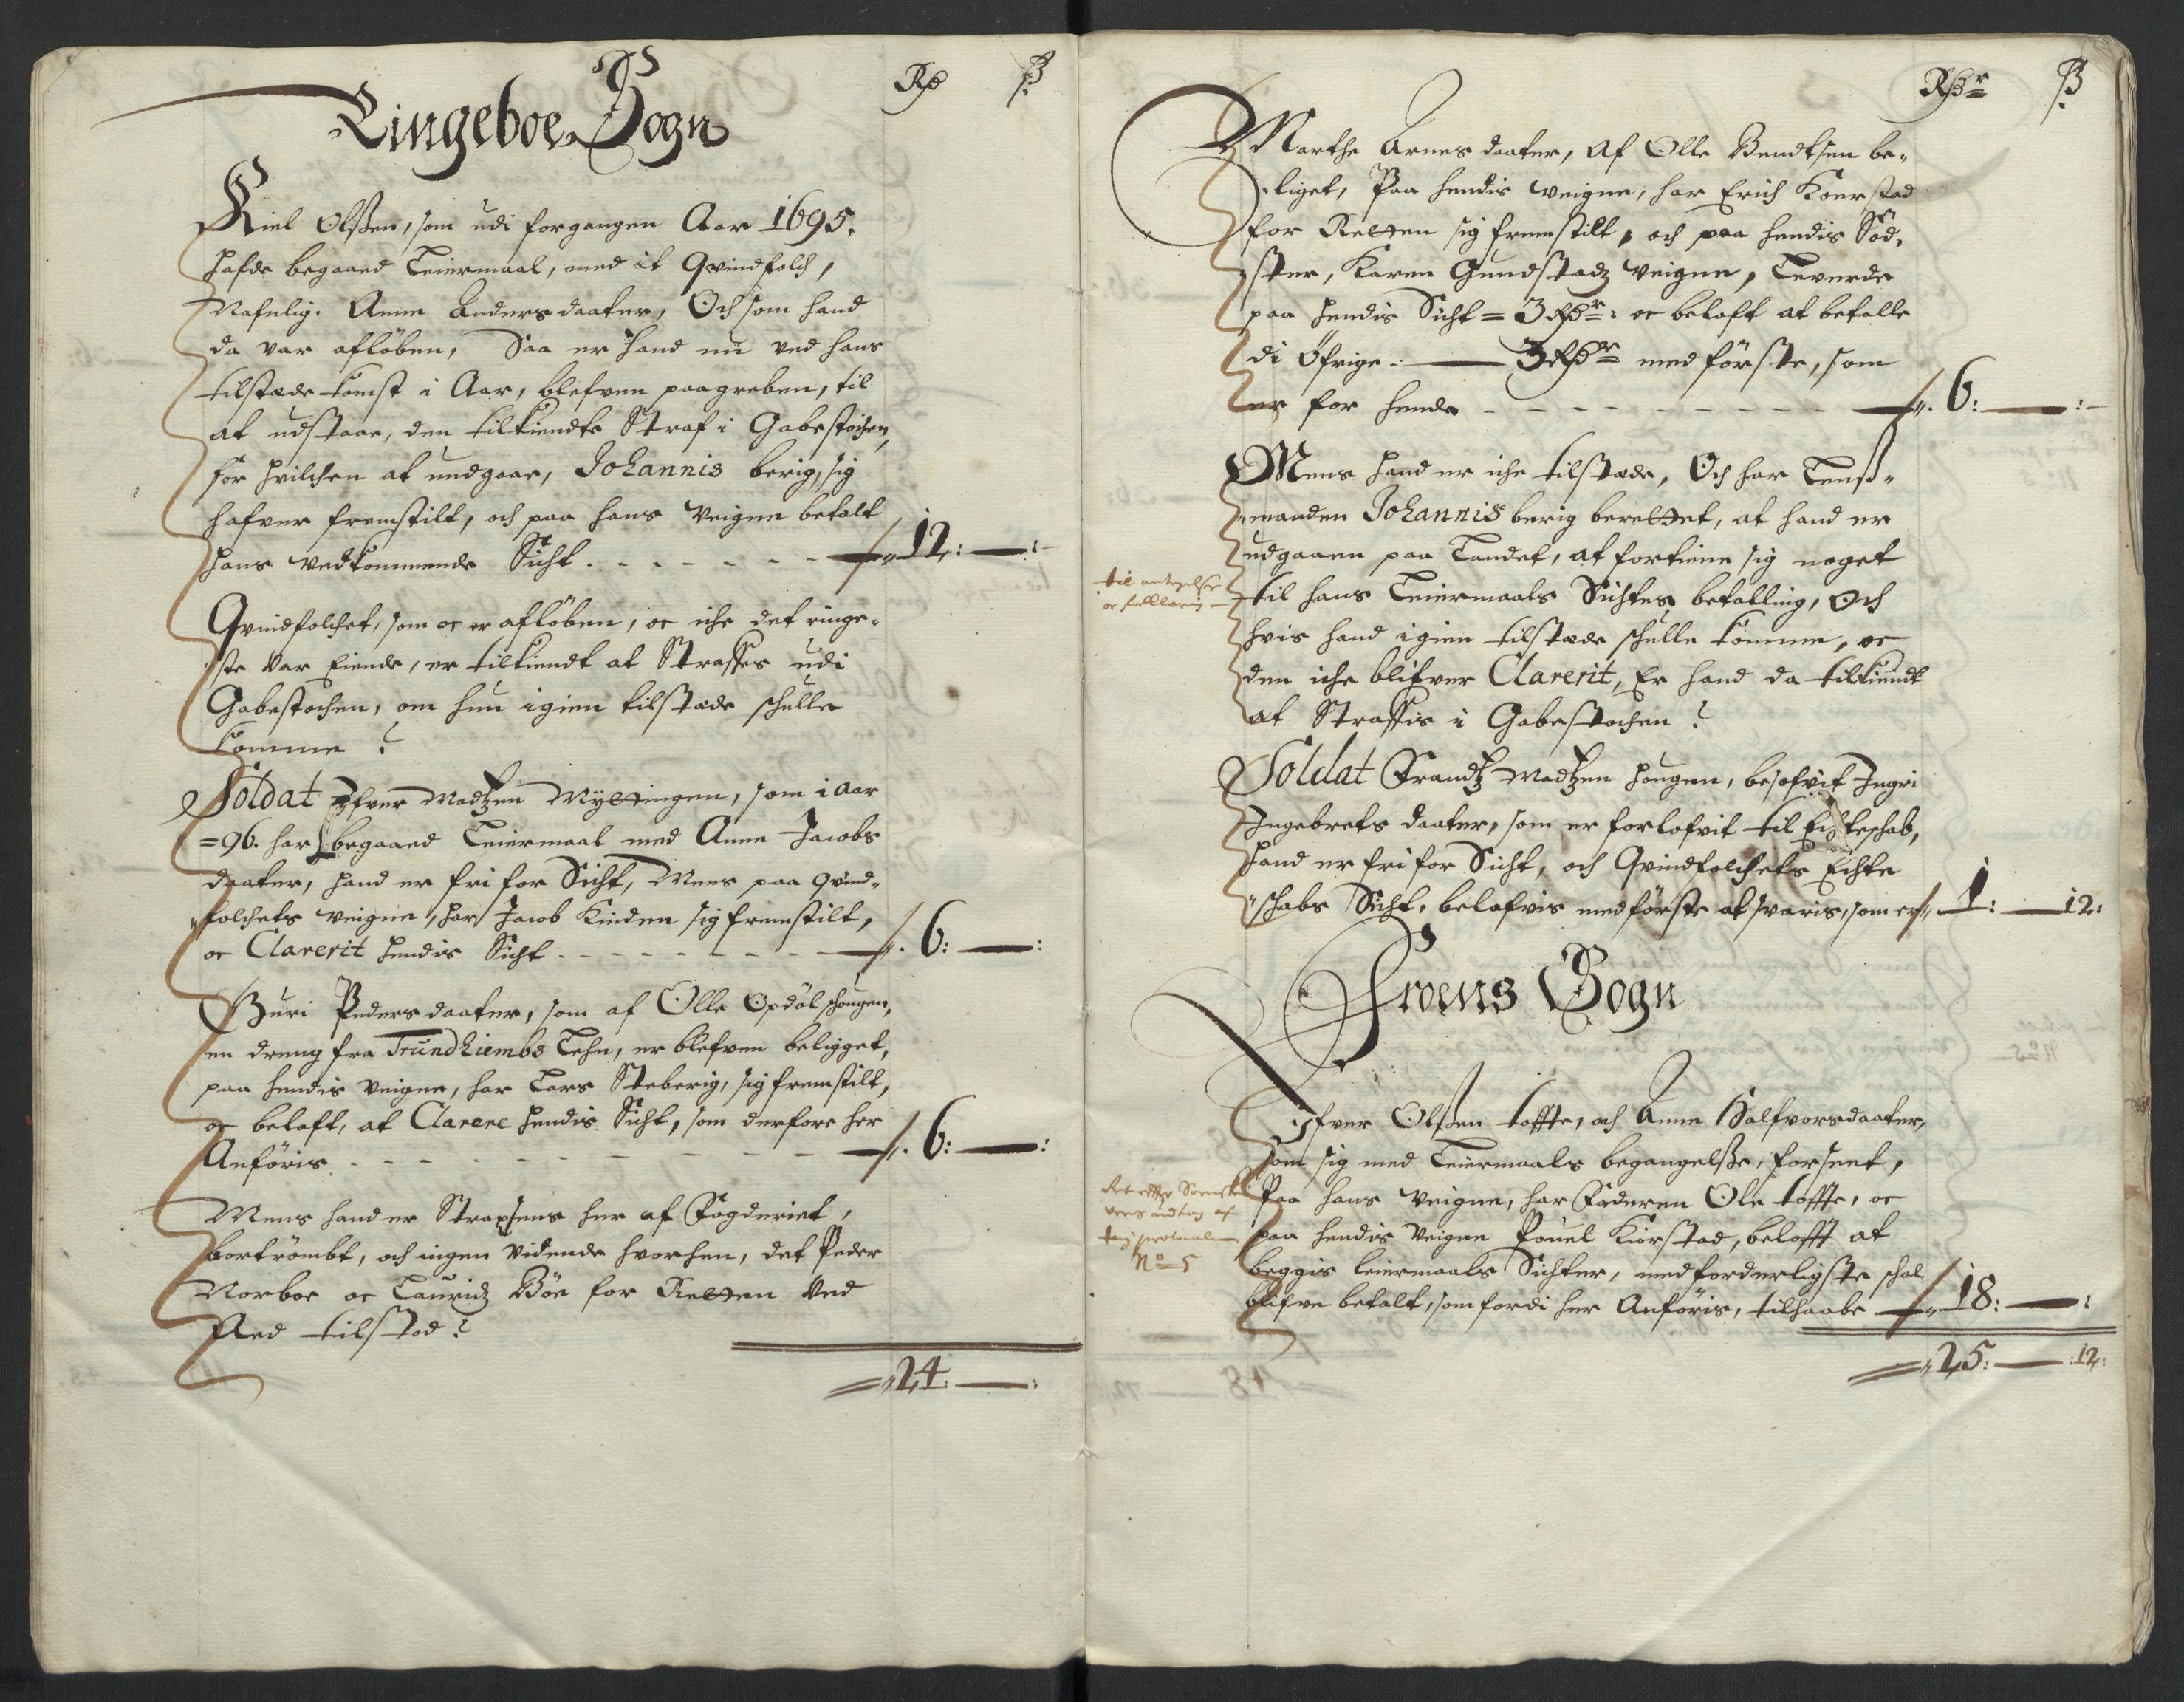 Ringeboe Sogn
Rd ß
Kiel Olßen, som udi forgangen Aar 1695.
hafde begaaed Leiermaal, med it Qvindfolch,
Nafnlig. Anne Anders daater, Och som hand
da var afløben, Saa er hand nu ved hans
tilstæde komst i Aar, blefven paagreben, til
at udstaae, den tilkiendte Straf i Gabestochen,
for hvilchen at undgaae, Johannis berig, sig
hafver fremstilt, och paa hans Veigne betalt
hans vedkommende Sicht . - - - - - 12: — :
Qvindfolchet, som oc er afløben, oc iche det ringe-
ste var Eiende, er tilkiendt at Straffes udi
Gabestochen, om hun igien tilstæde schulle
komme ?
Soldat Ifver Madtzen Myttingen, som i aar
=96. har begaaed Leiermaal med Anne Jacobs
daater, hand er fri for Sicht, Mens paa qvind-
folchets veigne, har Jacob Kinden sig fremstilt,
oc Clarerit hendis Sicht - - - - - - 6: — :
Guri Peders daater, som af Olle Opdøl schougen,
en dreng fra Trundhiembs Lehn, er blefven beligget,
paa hendis veigne, har Lars Steberig, sig fremstilt,
oc belaft, at Clarere hendis Sicht, som derfore her
Anføris - - - - - - - - 6: — :
Mens hand er Straxsens her af Fogderiet,
bortrømbt, och ingen vidende hvorhen, det Peder
Norboe oc Lauridz Böe for Retten ved
Aed tilstod ?
24: — :
Rdr ß
Marthe Arnes daater, Af Olle Bendtsen be-
liget, Paa hendis veigne, har Erich Koerstad
for Retten sig fremstilt, och paa hendis Sød-
ster, Karen Gundstadz veigne, Leverde
paa hendis Sicht = 3 Rdr: oc belaft at betalle
di Øfrige. — 3 Rdr med første, som
er for hende - - - - - - - 6: — :
Mens hand er iche tilstæde, Och har Lenß-
manden Johannis berig berettet, at hand er
udgaaen paa Landet, at fortiene sig noget
til hans Leiermaals Sichtes betalling, Och
hvis hand igien tilstæde schulle komme, oc
den iche blifver Clarerit, Er hand da tilkiendt
at Straffis i Gabestochen ?
til antegelse
Soldat Frandtz Madtzen hougen, besofvit Ingri
Ingebrets daater, som er forlofvit til Echteschab,
hand er fri for Sicht, och Qvindfolchets Echte
schabs Sicht, belafvis med første at svaris, som er 1: — 12:
Froens Sogn
Ifver Olßen toffte, och Anne Halfvorsdaater,
som sig med Leiermaals begangelsße, forseet,
Paa hans veigne, har Faderen Ole toffte, oc
paa hendis Veigne Pouel Kiørstad, belofft at
beggis leiermaals Sichter, med forderligste schal
blifve betalt, som fordi her Anføris, tilhaabe — 18: — :
No 5
25: — :12: